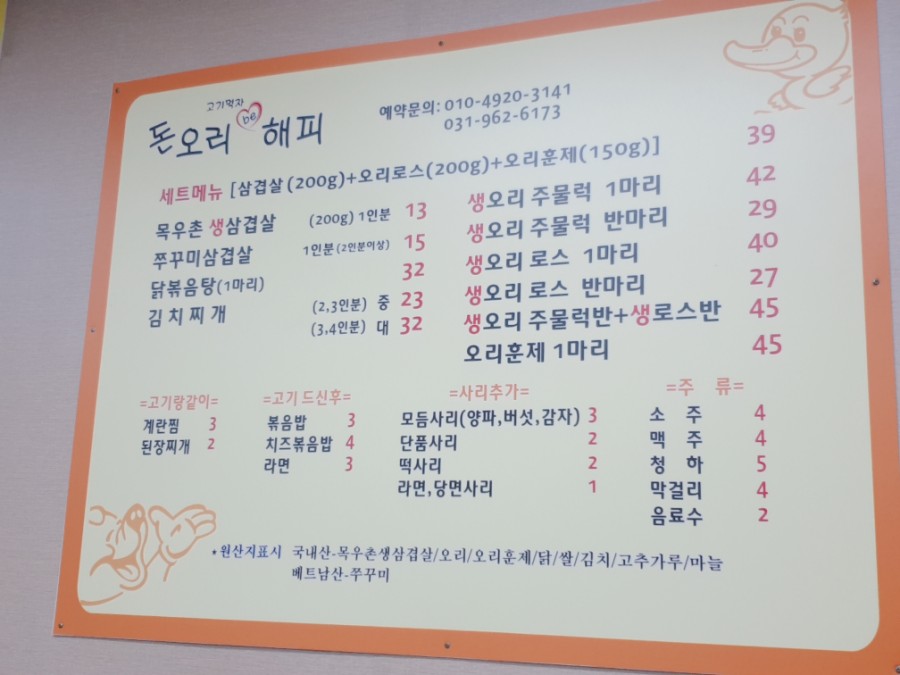 고기먹자
돈오리 be 해피
예약문의: 010-4920-3141
031-962-6173
세트메뉴 [삼겹살(200g)+오리로스(200g)+오리훈제(150g)] 39
목우촌 생삼겹살 (200g) 1인분 13
쭈꾸미삼겹살 1인분(2인분이상) 15
닭볶음탕(1마리) 32
김치찌개 (2,3인분) 중 23
(3,4인분) 대 32
생오리 주물럭 1마리 42
생오리 주물럭 반마리 29
생오리 로스 1마리 40
생오리 로스 반마리 27
생오리 주물럭반+생로스반 45
오리훈제 1마리 45
=고기랑같이=
계란찜 3
된장찌개 2
=고기 드신후=
볶음밥 3
치즈볶음밥 4
라면 3
=사리추가=
모듬사리(양파,버섯,감자) 3
단품사리 2
떡사리 2
라면,당면사리 1
=주 류=
소 주 4
맥 주 4
청 하 5
막걸리 4
음료수 2
*원산지표시 국내산-목우촌생삼겹살/오리/오리훈제/닭/쌀/김치/고추가루/마늘
베트남산-쭈꾸미